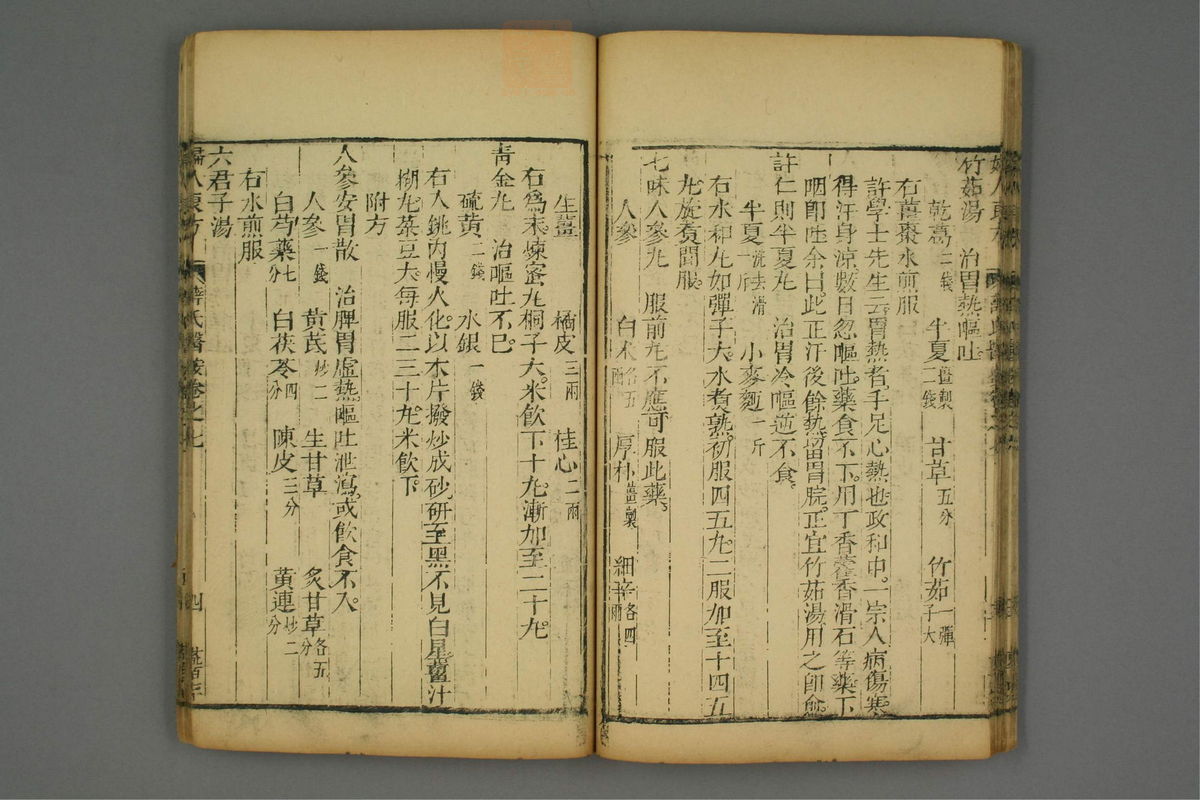 竹茹湯　治胃熱嘔吐
乾葛二錢　半夏薑製二錢　甘草五分　竹茹一彈子大
右薑棗水煎服
許學士先生云胃熱者手足心熱也政和中一宗人病傷寒
得汗身凉數日忽嘔吐藥食不下用丁香藿香滑石等藥下
咽即吐余曰此正汗後餘熱留胃脘正宜竹茹湯用之即愈
許仁則半夏丸　治胃冷嘔逆不食
半夏洗去滑一斤　小麥麵一斤
右水和丸如彈子大水煑熟初服四五丸二服加至十四五
丸旋煑間服
七味人參丸　服前丸不應可服此藥
人參　白术各五兩　厚朴薑製　細辛各四兩
生薑　橘皮三兩　桂心二兩
右爲末煉蜜丸桐子大米飲下十丸漸加至二十丸
靑金丸　治嘔吐不已
硫黃二錢　水銀一錢
右入銚內慢火化以木片撥炒成砂研至黑不見白星薑汁
糊丸菉豆大每服二三十丸米飲下
附方
人參安胃散　治脾胃虛熱嘔吐泄瀉或飮食不入
人參一錢　黃芪炒二　生甘草　炙甘草各五分
白芍藥七分　白茯苓四分　陳皮三分　黃連炒二分
右水煎服
六君子湯
婦人良方　薛氏醫按卷之七　四